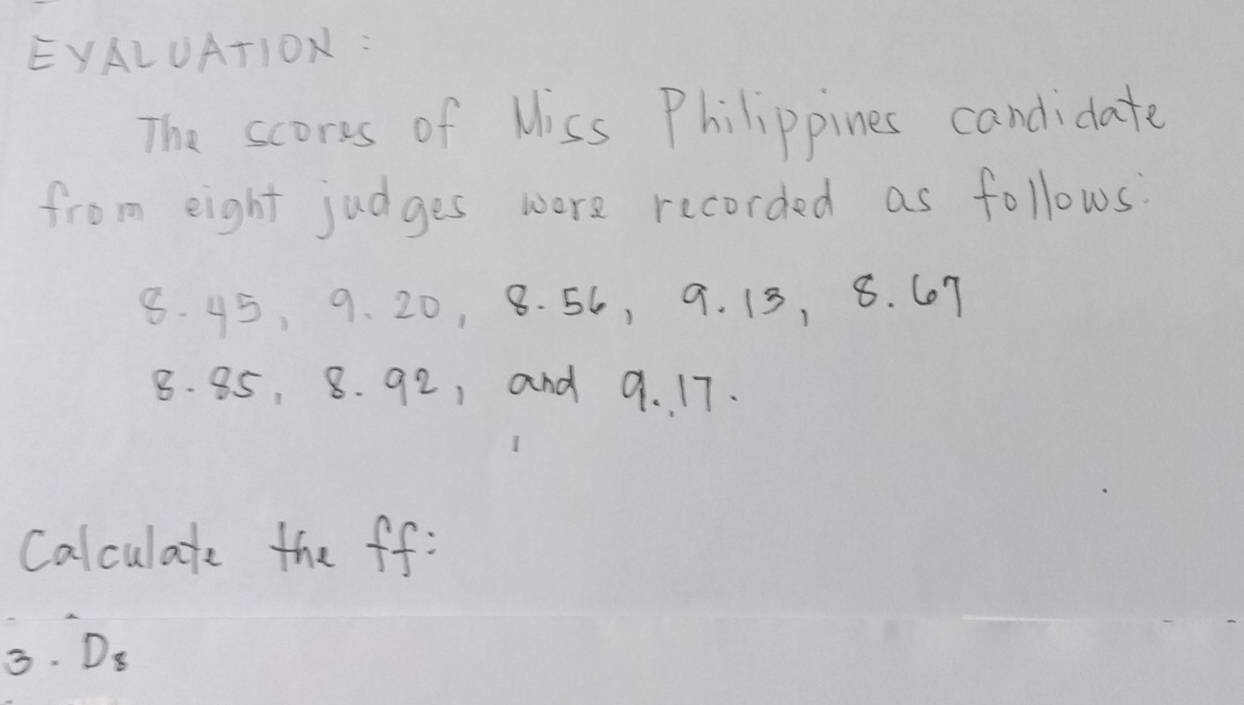 EVALUATION:
The scores of Miss Philippines candidate
from eight judges were recorded as follows:
8.45, 9.20, 8.56, 9.13, 8.67
8.85, 8.92, and 9.17.
Calculate the ff:
3. D8